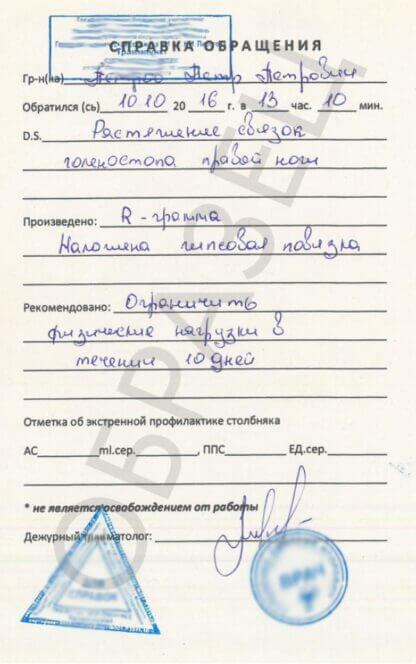 СПРАВКА ОБРАЩЕНИЯ
Гр-н(на) Петров Петр Петрович
Обратился (сь) 10 10 20 16 г. в 13 час. 10 мин.
D.S. Растяжение связок
голеностопа правой ноги
Произведено: R - грамма
Наложена гипсовая повязка
Рекомендовано: Ограничить
физические нагрузки в
течении 10 дней
Отметка об экстренной профилактике столбняка
АС ml.сер. , ППС ЕД.сер.
* не является освобождением от работы
Дежурный травматолог:
ДЛЯ
СПРАВОК
ВРАЧ
ОБРАЗЕЦ